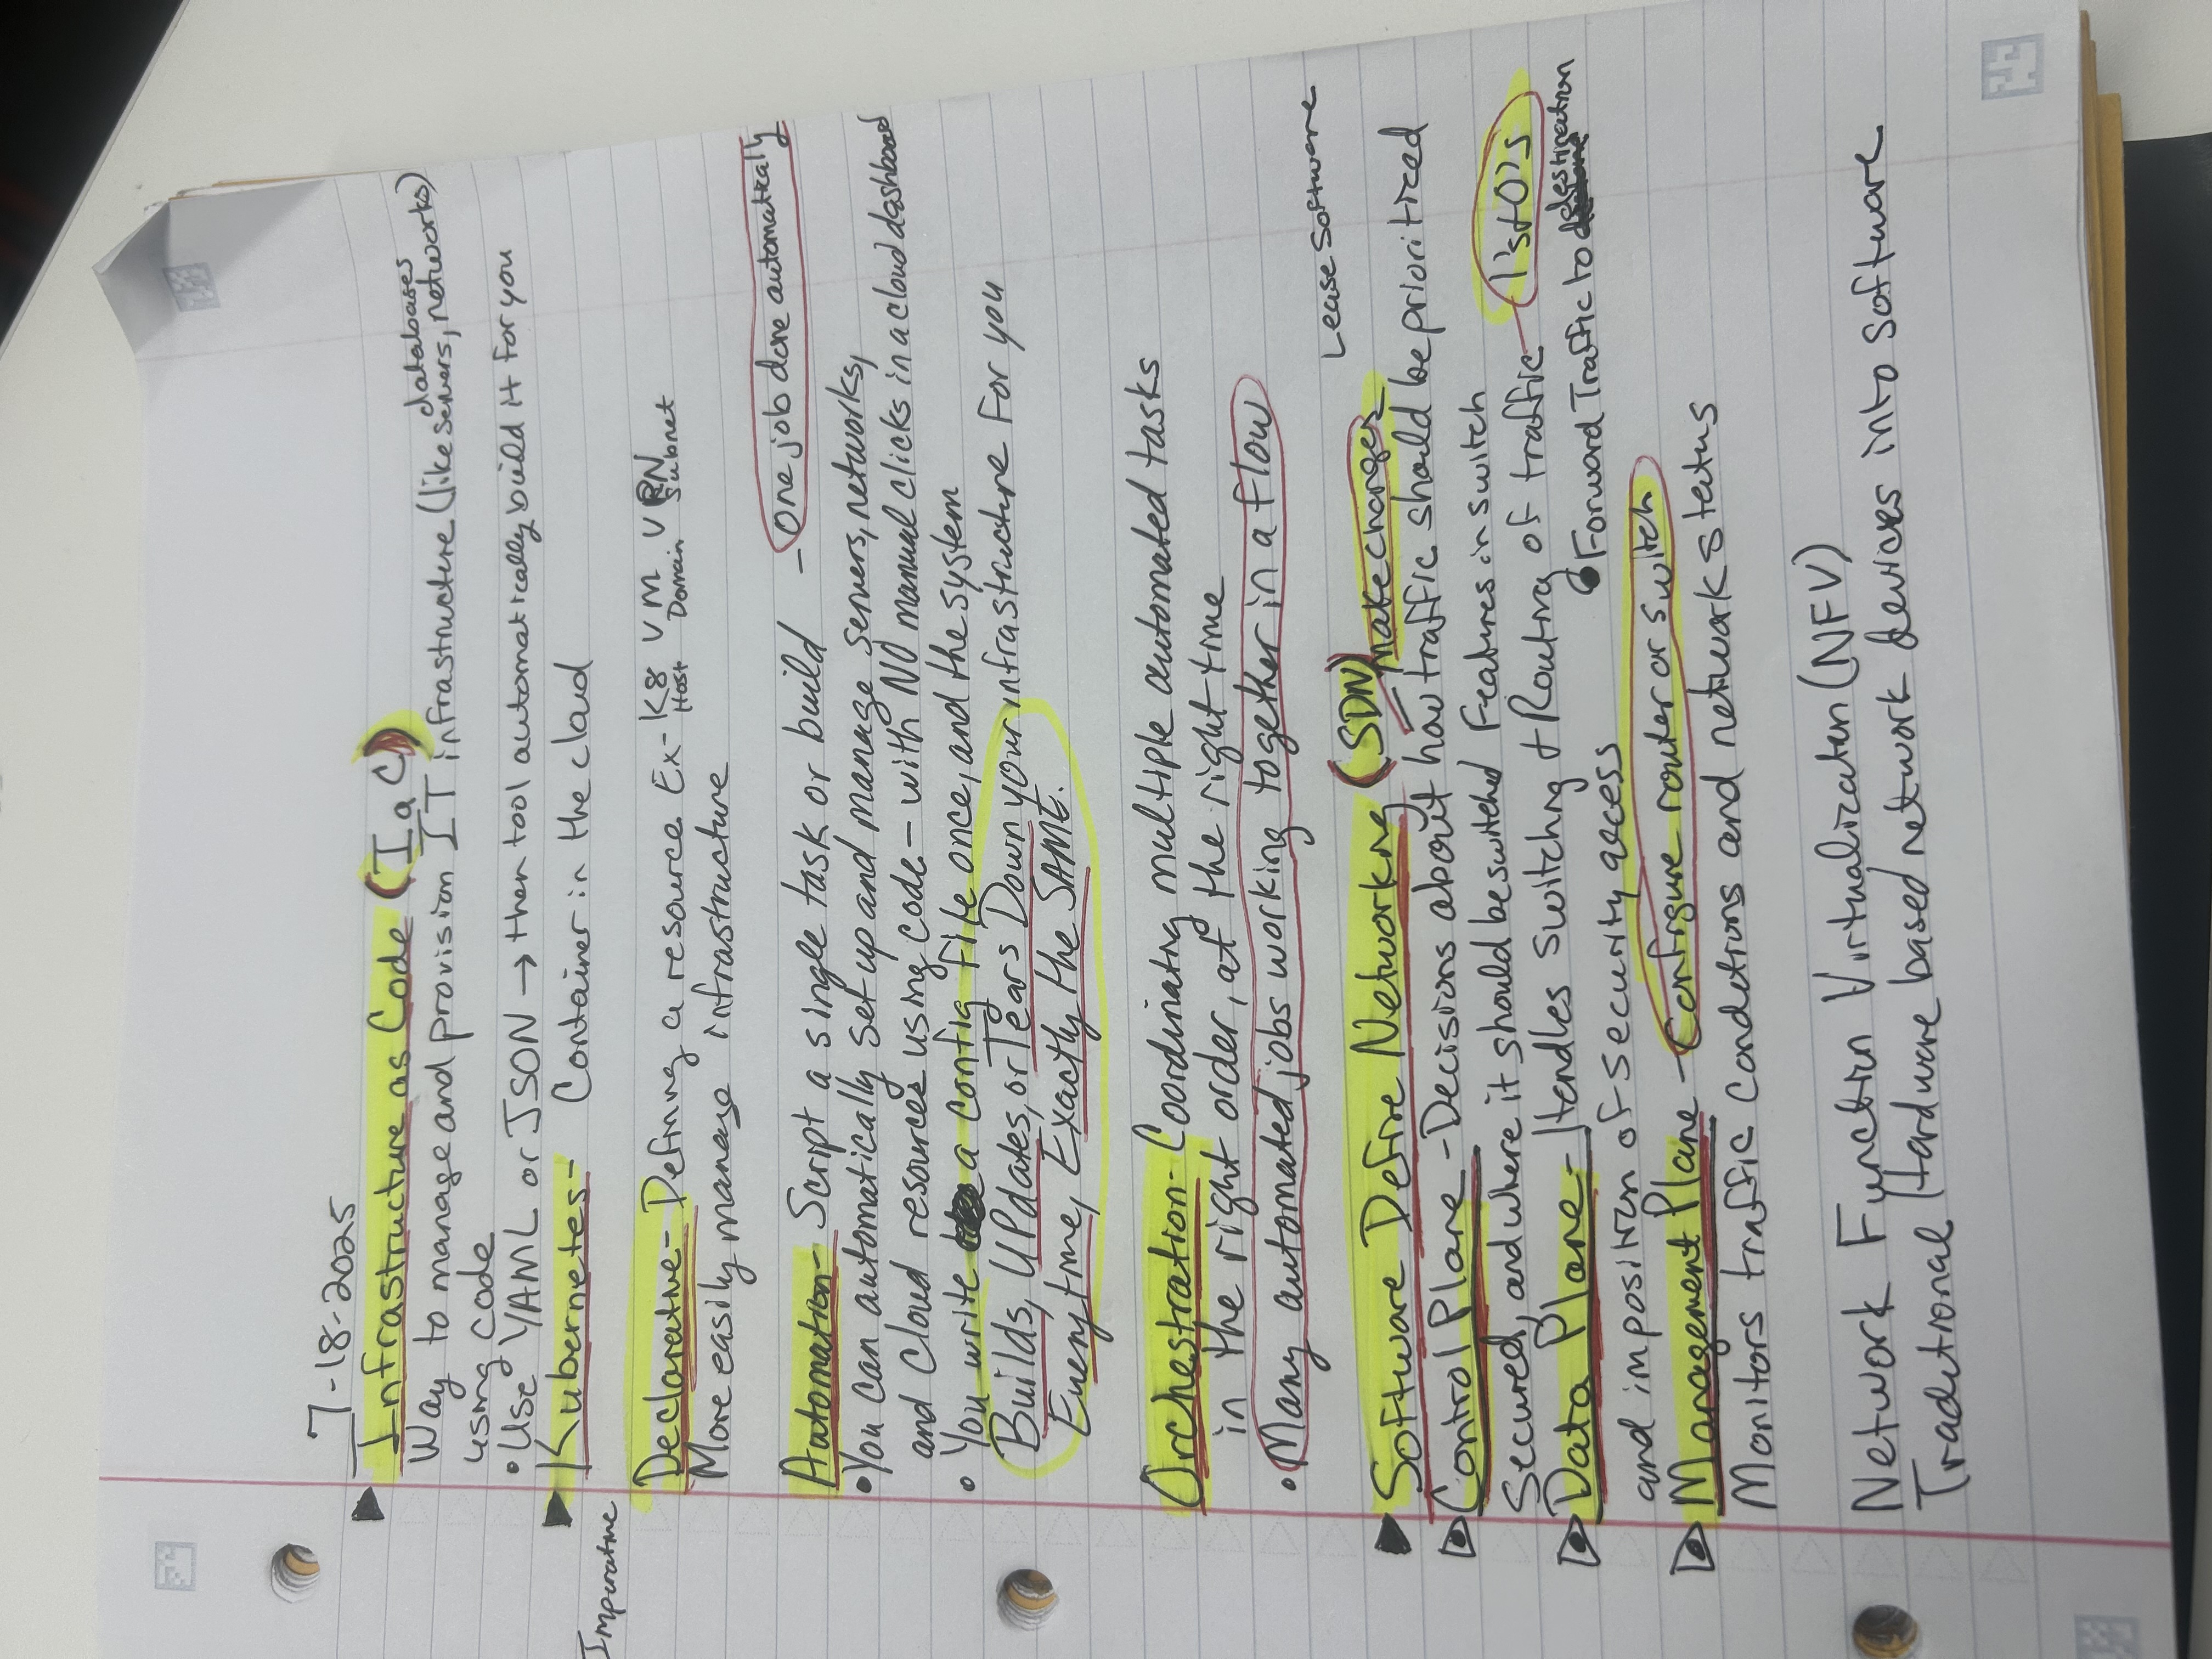 7-18-2025
Infrastructure as Code (IaC)
databases
Way to manage and provision IT infrastructure (like servers, networks)
using code
• Use YAML or JSON → then tool automatically build it for you
Kubernetes - Container in the cloud
Imperative
Declarative - Defining a resource Ex - K8 VM VPN
Host Domain Subnet
More easily manage infrastructure
Automation - Script a single task or build - One job done automatically
• You can automatically set up and manage servers, networks,
and cloud resources using code - with NO manual clicks in a cloud dashboard
• You write a config file once, and the system
Builds, Updates, or Tears Down your infrastructure for you
Everytime, Exactly the SAME.
Orchestration - Coordinating multiple automated tasks
in the right order, at the right time
• Many automated jobs working together in a flow
Lease Software
Software Define Networking (SDN) make changes
Control Plane - Decisions about how traffic should be prioriticed
Secured, and where it should be switched Features in switch
Data Plane - Handles Switching + Routing of traffic - 1's+0's
• Forward Traffic to destination
and imposition of security access
Management Plane - Configure router or switch
Monitors traffic conditions and network status
Network Function Virtualization (NFV)
Traditional Hardware based network devices into software